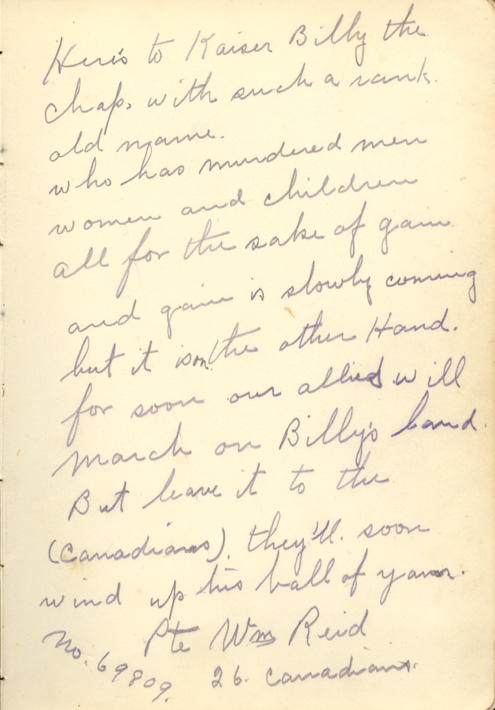 Here's to Kaiser Billy the
chap, with such a rank
old name.
who has murdered men
women and children
all for the sake of gain
and gain is slowly coming
but it is on the other Hand.
for soon our allied will
March on Billy's land.
But leave it to the
(Canadians), they'll soon
wind up his ball of yarn.
Pte Wm Reid
No. 69809. 26. Canadians.